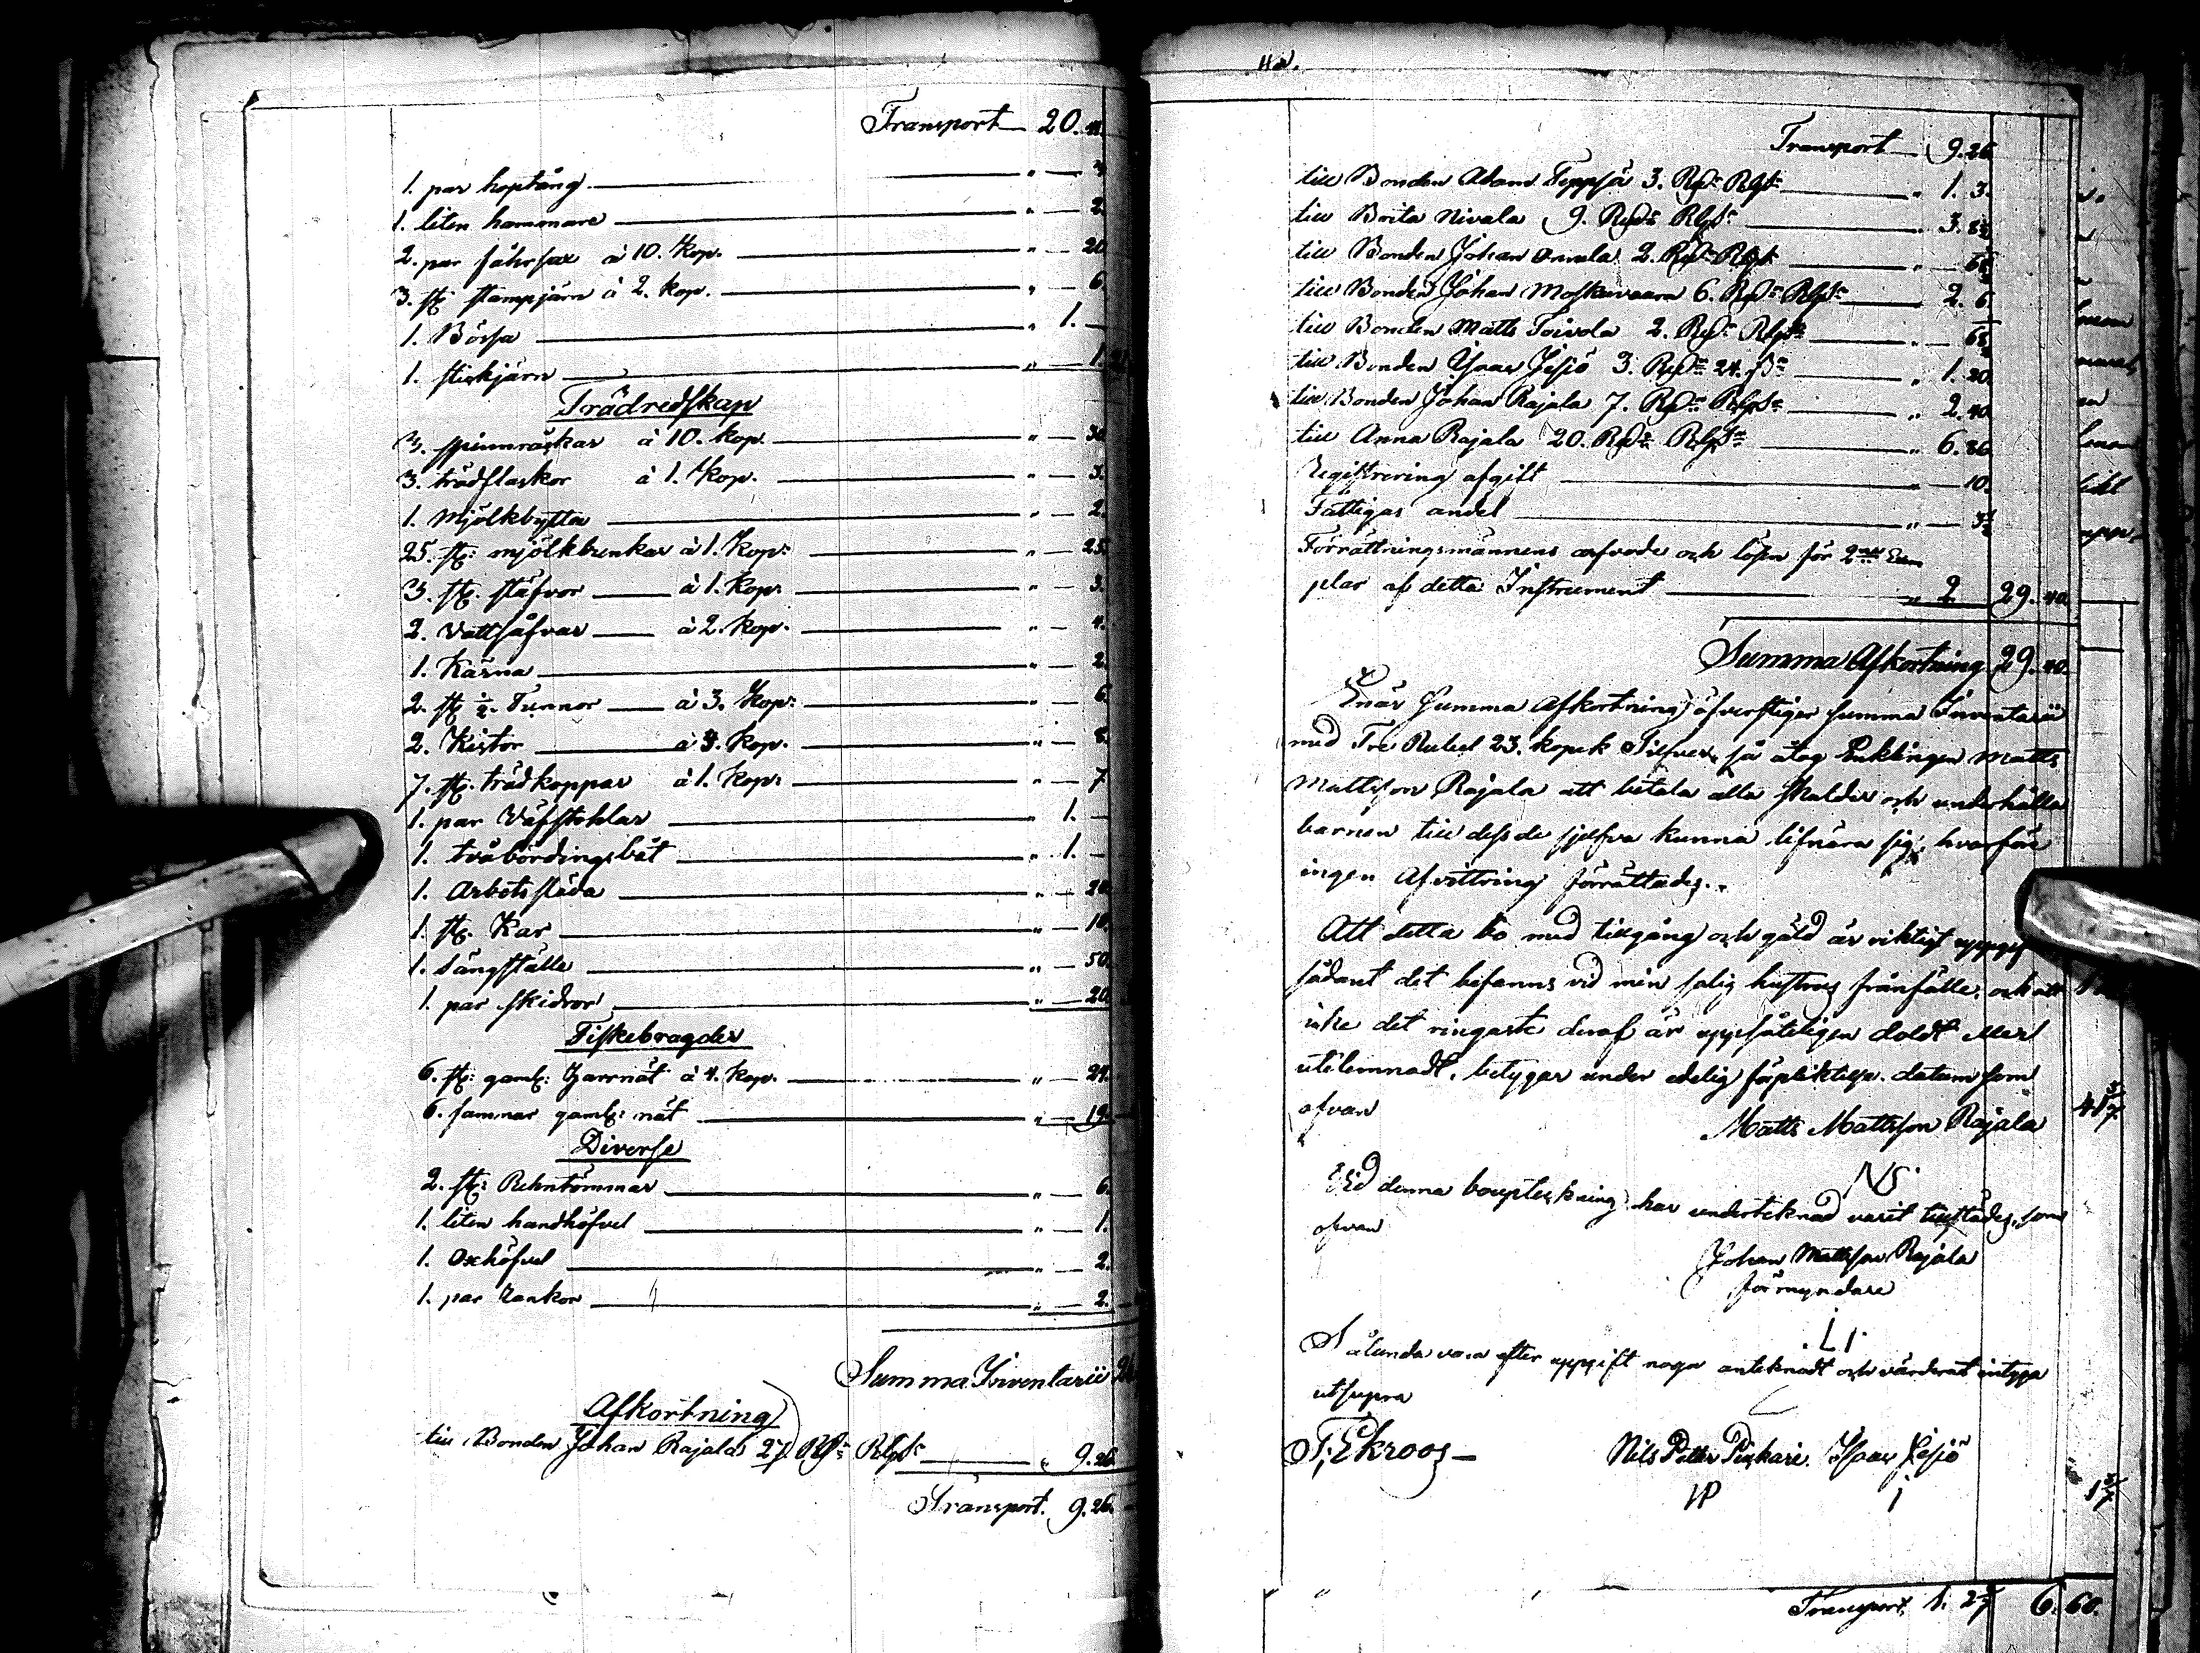 Transport 20.
1. par hoptång " — 4
1. liten hammare " — 2.
2. par fåhrsax à 10. Kop. " — 20
3. st. stampjärn à 2. kop. " — 6
1. Bössa " 1. —
1. stickjärn " — 1.
Trädredskap
3. spinnråckar à 10. kop. " — 30
3. trädflaskor à 1. Kop. " — 3.
1. Mjölkbytta " — 2.
25. st: mjölkbunkar à 1. Kop: " — 25.
3. st. stäfvor à 1. Kop: " — 3.
2. Vattsåfvar à 2. kop. " — 4.
1. Kärna " — 2.
2. st ½. Tunnor à 3. Kop: " — 6.
2. Kistor à 4. Kop. " — 8.
7. st. trädkoppar à 1. Kop: " — 7
1. par Väfstohlar " 1. —
1. tvåbördingsbåt " 1. —
1. Arbetssläda " — 20
1. st. Kar " — 10.
1. sängställe " — 50.
1. par skidor " — 20.
Fiskebragder
6. st: gaml: Garnnät à 4. Kop. " — 24.
6. famnar gaml: nät " — 19.
Diverse
2. st: Rehntömmar " — 6.
1. liten handhöfvel " — 1.
1. Oxhöfvel " — 2.
1. par Rankor " — 2.
Summa Inventarii
Afkortning
till Bonden Johan Rajala 27. Rd: Rgs: " 9.26.
Transport. 9.26.
Transport 9.26
till Bonden Adam Seppjä 3. Rd: Rgs: " 1. 3.
till Brita Nivala 9. Rd: Rgs: " 3. 8½
till Bonden Johan Onnela 2. Rd: Rgs: " — 68½
till Bonden Johan Moskuvaara 6. Rd: Rgs: 2. 6
till Bonden Matts Toivola 2. Rd: Rgs: " — 68½
till Bonden Isaac Jesiö 3. Rd: 24. s: " 1. 20.
till Bonden Johan Rajala 7. Rd: Rgs: " 2. 40.
till Anna Rajala 20. Rd: Rgs: " 6. 86.
Registrering afgift " — 10.
Fattigas andel " — 3½
Förrättningsmännens arfvode och lösen för 2ne Exem
plar af detta Instrument " 2 29. 40.
Summa Afkortning 29. 40.
Enär Summa Afkortning öfverstiger summa Inventarii
med Tre Rubel 23. kopek Silfver, så åtog Enklingen Matts
Mattsson Rajala att betala alla skulder och underhålla
barnen till dess de sjelfva kunna lifnära sig, hvarföre
ingen Afvittring förrättades.
Att detta bo med tillgång och gäld är riktigt
sådant det befanns vid min salig hustrus frånfälle, och att
icke det ringaste deraf är uppsåteligen doldt eller
utelemnadt, betygar under edelig förpliktelse. datum som
ofvan
Matts Mattsson Rajala
Vid denna bouptekning har undertecknad varit tillstädes, som
ofvan
Johan Mattsson Rajala
förmyndare
Sålunda vara efter uppgift noga antecknadt och värderat intyga
utsupra
F. Ekroos — Nils Petter Piskari. Isaac Jesiö
Transport, 1. 2 6. 60.